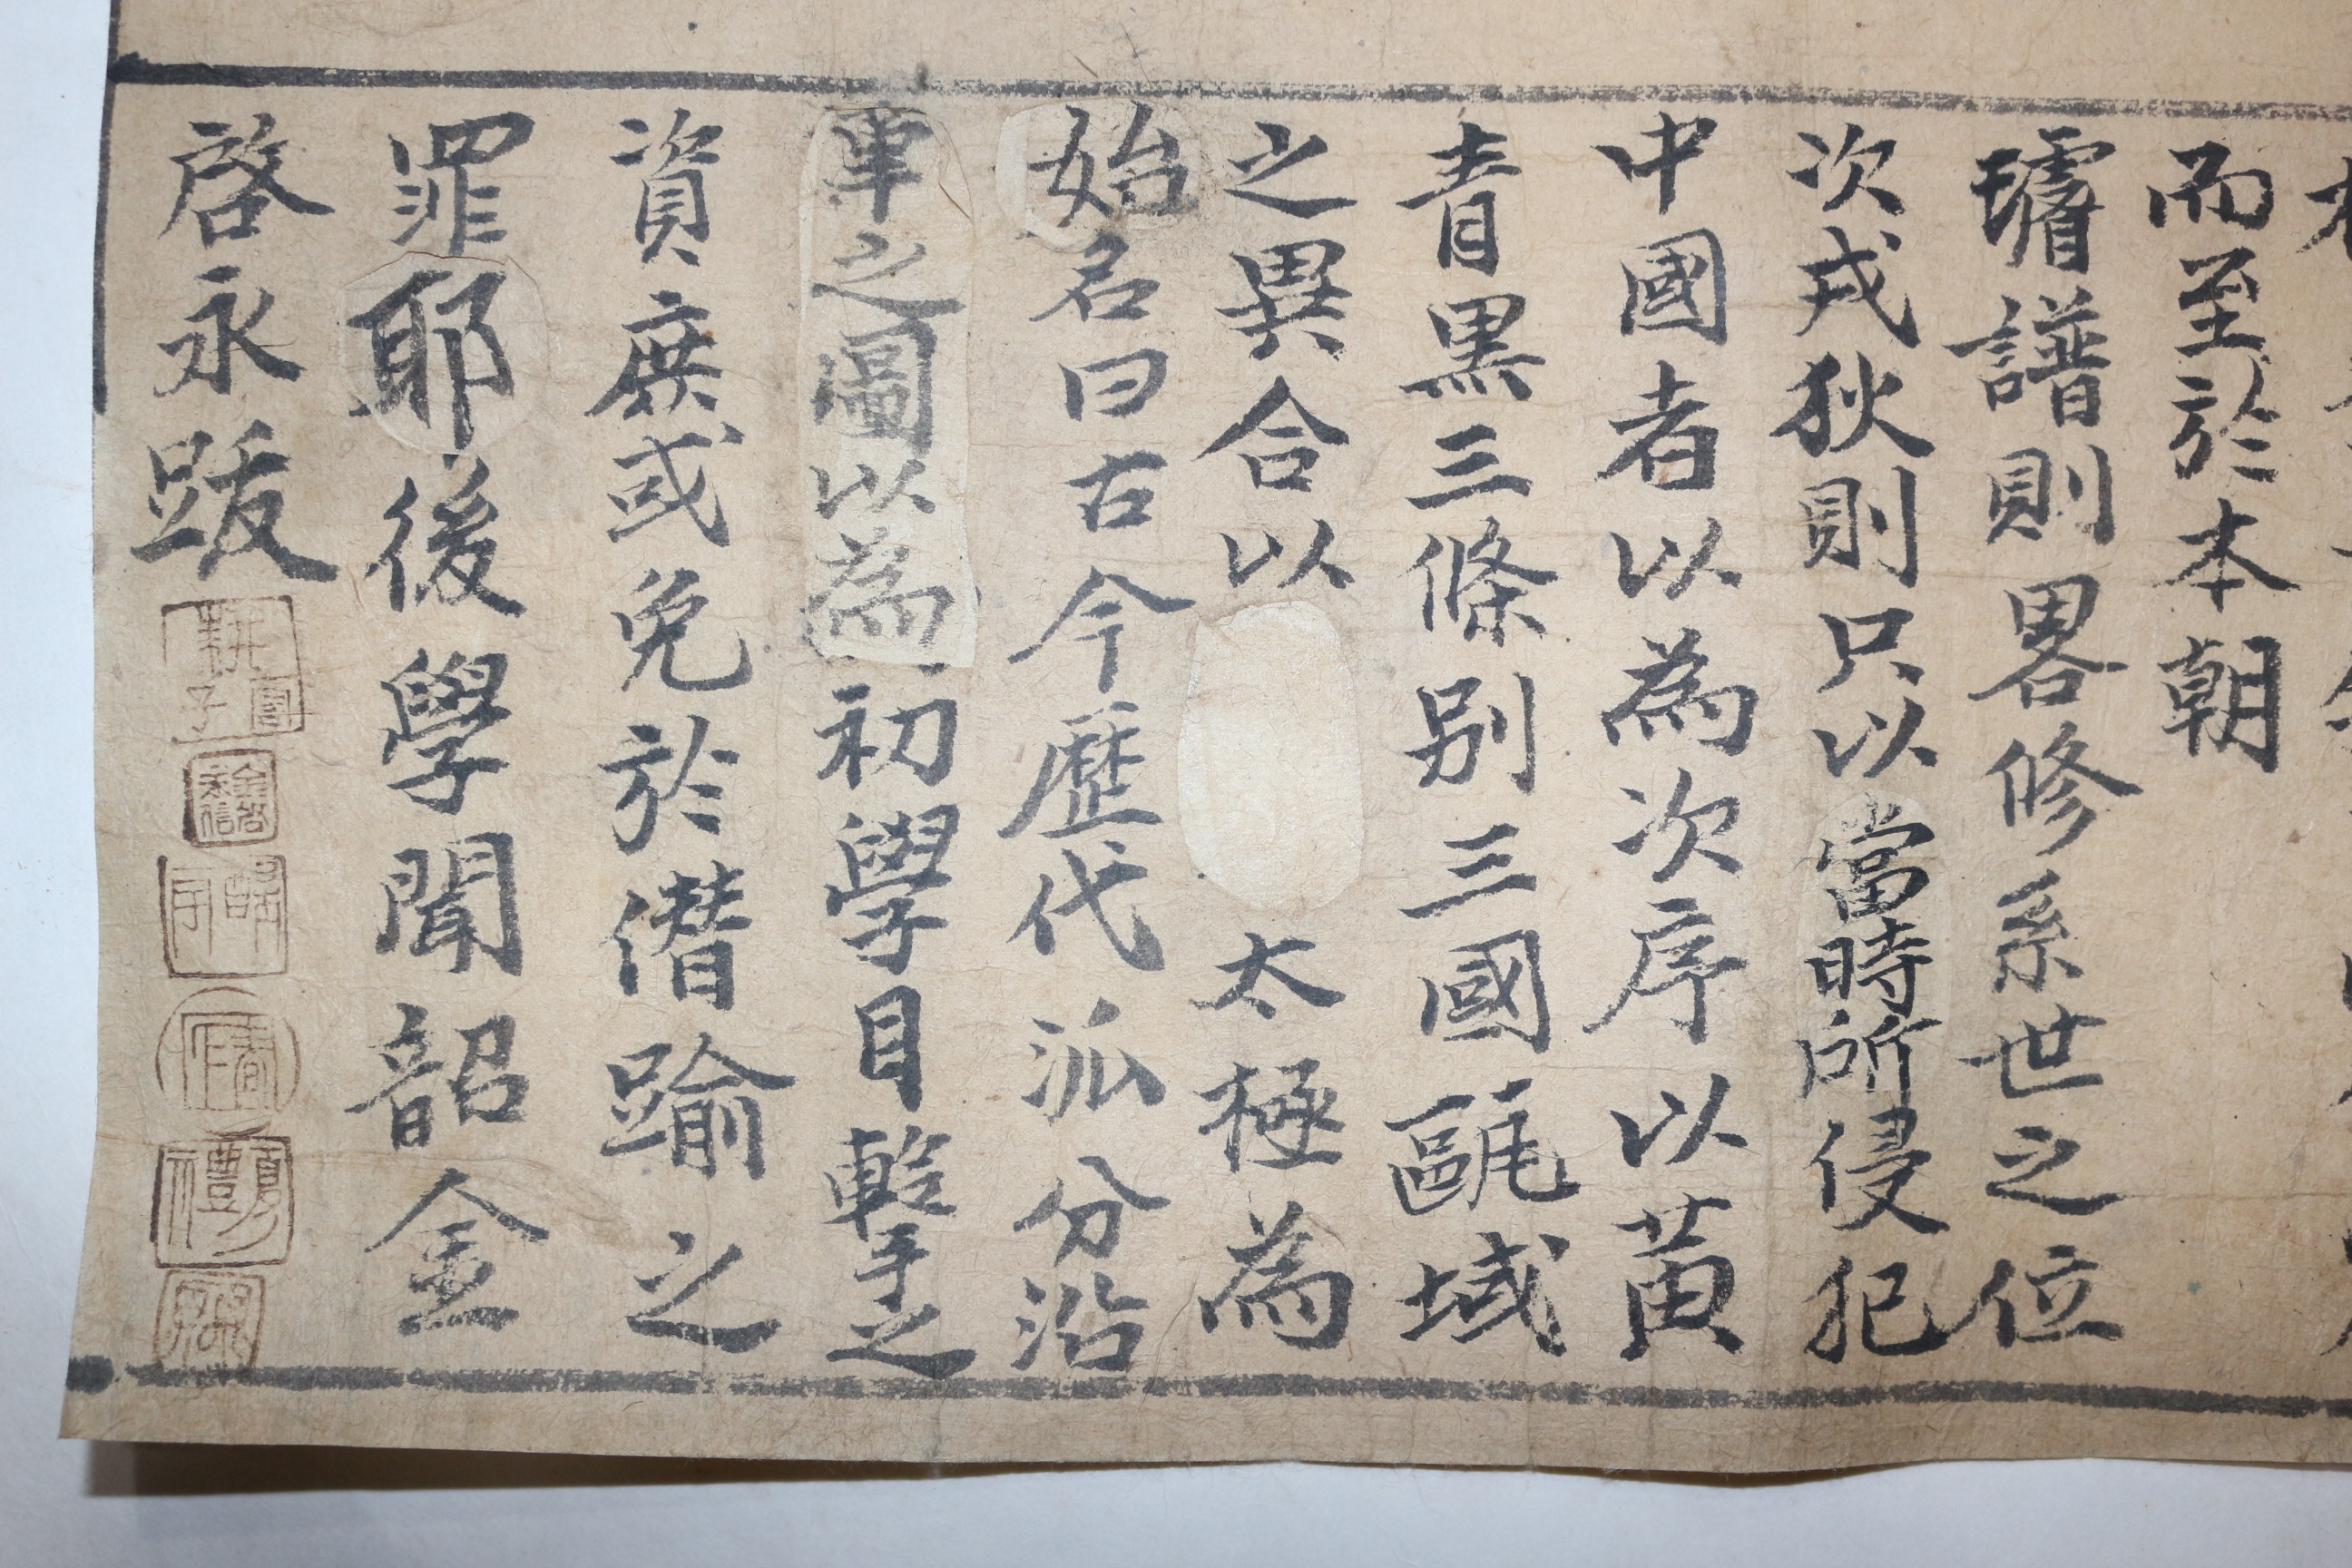 而至於本朝
璿譜則畧修系世之位
次戎狄則只以當時所侵犯
中國者以為次序以黃
青黑三條別三國甌域
之異合以太極為
始名曰古今歷代派分沿
革之圖以為初學目擊之
資庶或免於僭踰之
罪耶後學聞韶金
啓永跋